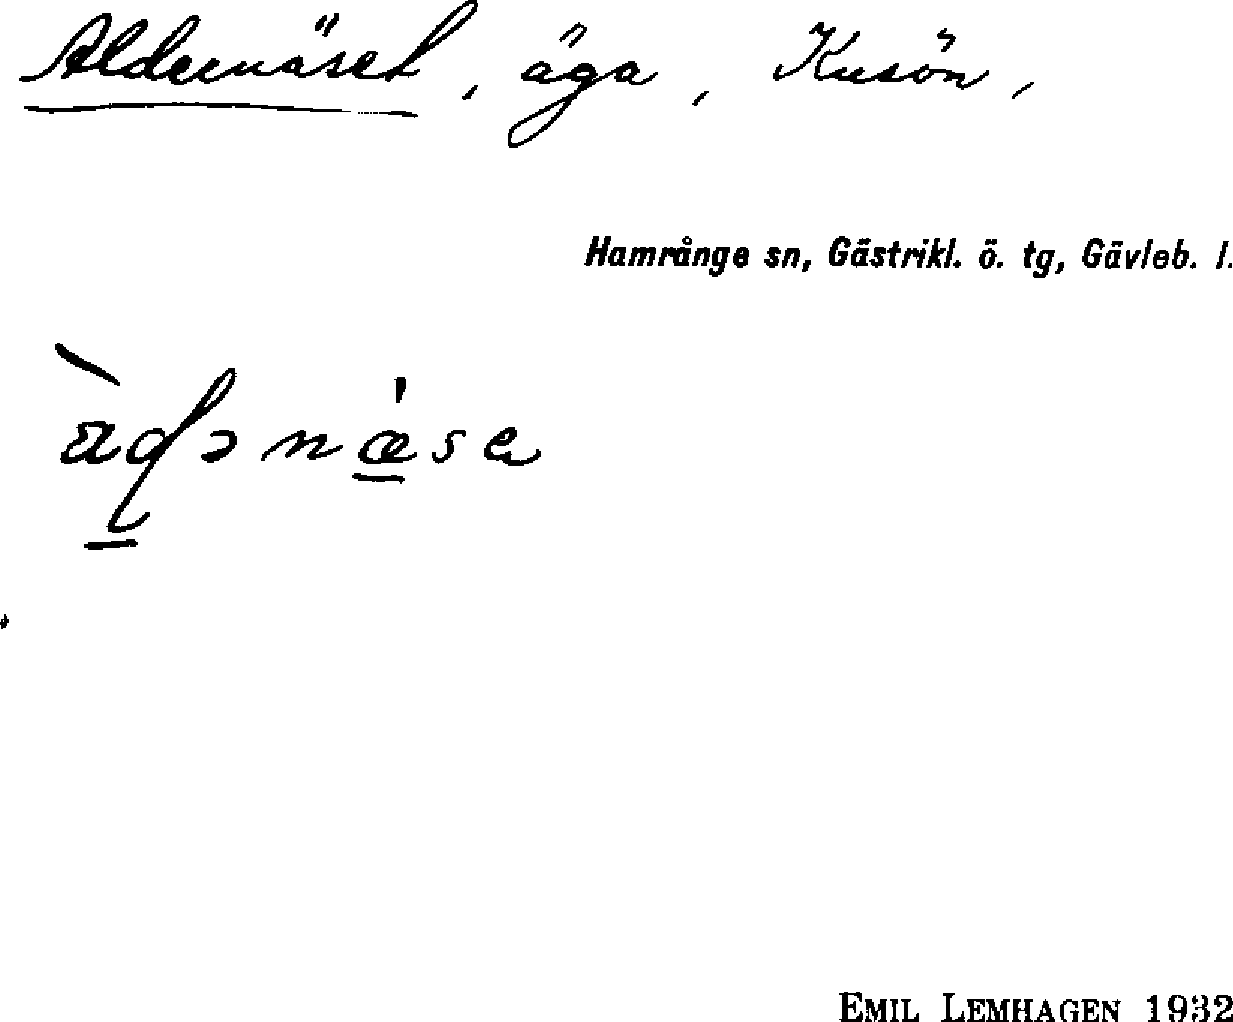 Aldernäset, äga, Kusön,
Hamrånge sn, Gästrikl. ö. tg, Gävleb. l.
EMIL LEMHAGEN 1932